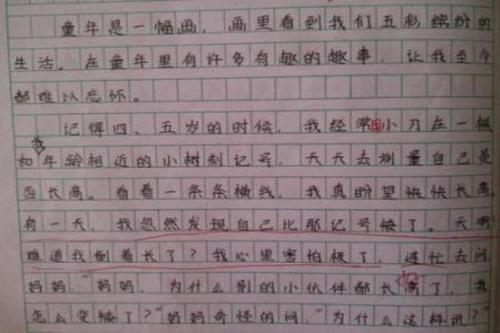 童年是一幅画，画里看到我们五彩缤纷的
生活。在童年里有许多有趣的趣事，让我至今
都难以忘怀。
记得四、五岁的时候，我经常用小刀在一棵
和年龄相近的小树刻记号，天天去测量自己是
否长高。看着一条条横线，我真盼望快快长高
有一天，我忽然发现自己比那记号矮了。天啊
难道我倒着长了？我心里害怕极了，连忙去问
妈妈“妈妈，为什么别的小伙伴都长高了，我
怎么变矮了？”妈妈奇怪的问“为什么这样说？”